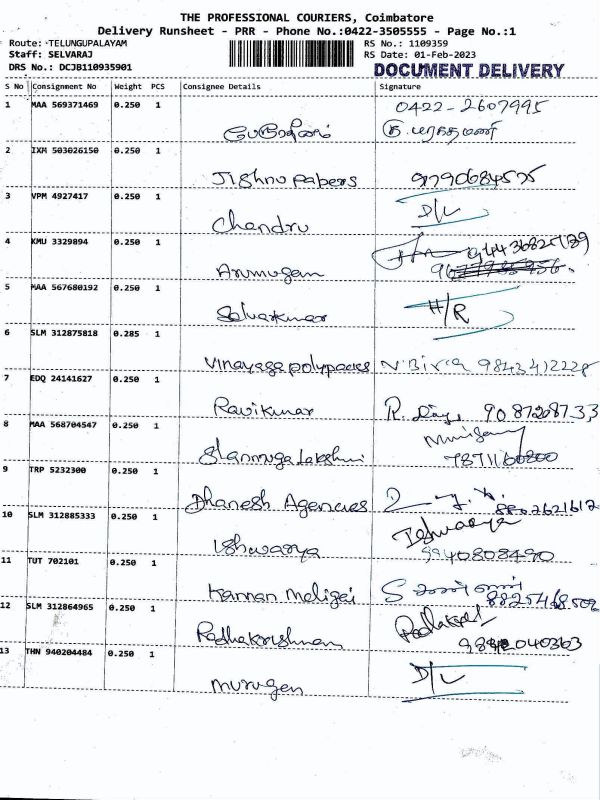 THE PROFESSIONAL COURIERS, Coimbatore
Delivery Runsheet - PRR - Phone No.:0422-3505555 - Page No.:1
Route: TELUNGUPALAYAM RS No.: 1109359
Staff: SELVARAJ RS Date: 01-Feb-2023
DRS No.: DCJB110935901 DOCUMENT DELIVERY
S No Consignment No Weight PCS Consignee Details Signature
1 MAA 569371469 0.250 1 0422-2607995
2 IXM 503026150 0.250 1
Jishnu papers 9790684575
3 VPM 4927417 0.250 1
Chandru D/L
4 KMU 3329894 0.250 1
Arumugam
5 MAA 567680192 0.250 1
Selvarkumar H/R
6 SLM 312875818 0.285 1
Vinayaga polypacks 9843412228
7 EDQ 24141627 0.250 1
Ravikumar R. 9087208733
8 MAA 568704547 0.250 1
Shanmuga Lakshmi
9 TRP 5232300 0.250 1
Dhanesh Agencies
10 SLM 312885333 0.250 1 Ishwarya
Ishwarya 9940808490
11 TUT 702101 0.250 1
Kannan Maligai S
12 SLM 312864965 0.250 1
Radhakrishnan
13 THN 940204484 0.250 1
Murugan D/L